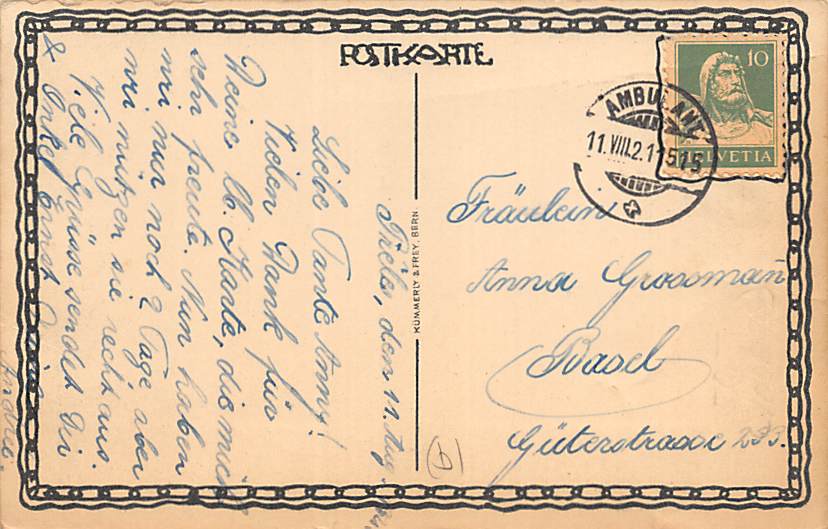 POSTKARTE
10
HELVETIA
AMBULANT
11.VIII.2.1 1515
KÜMMERLY & FREY, BERN
Fräulein
Anna Grossmann
Basel
Güterstrasse 233.
den 11. Aug.
Liebe Tante Anny!
Vielen Dank für
Deine lb. Karte, die mich
sehr freute. Nun haben
wir nur noch 2 Tage aber
wir nützen sie recht aus.
Viele Grüsse sendet Dir
& Onkel Ernst